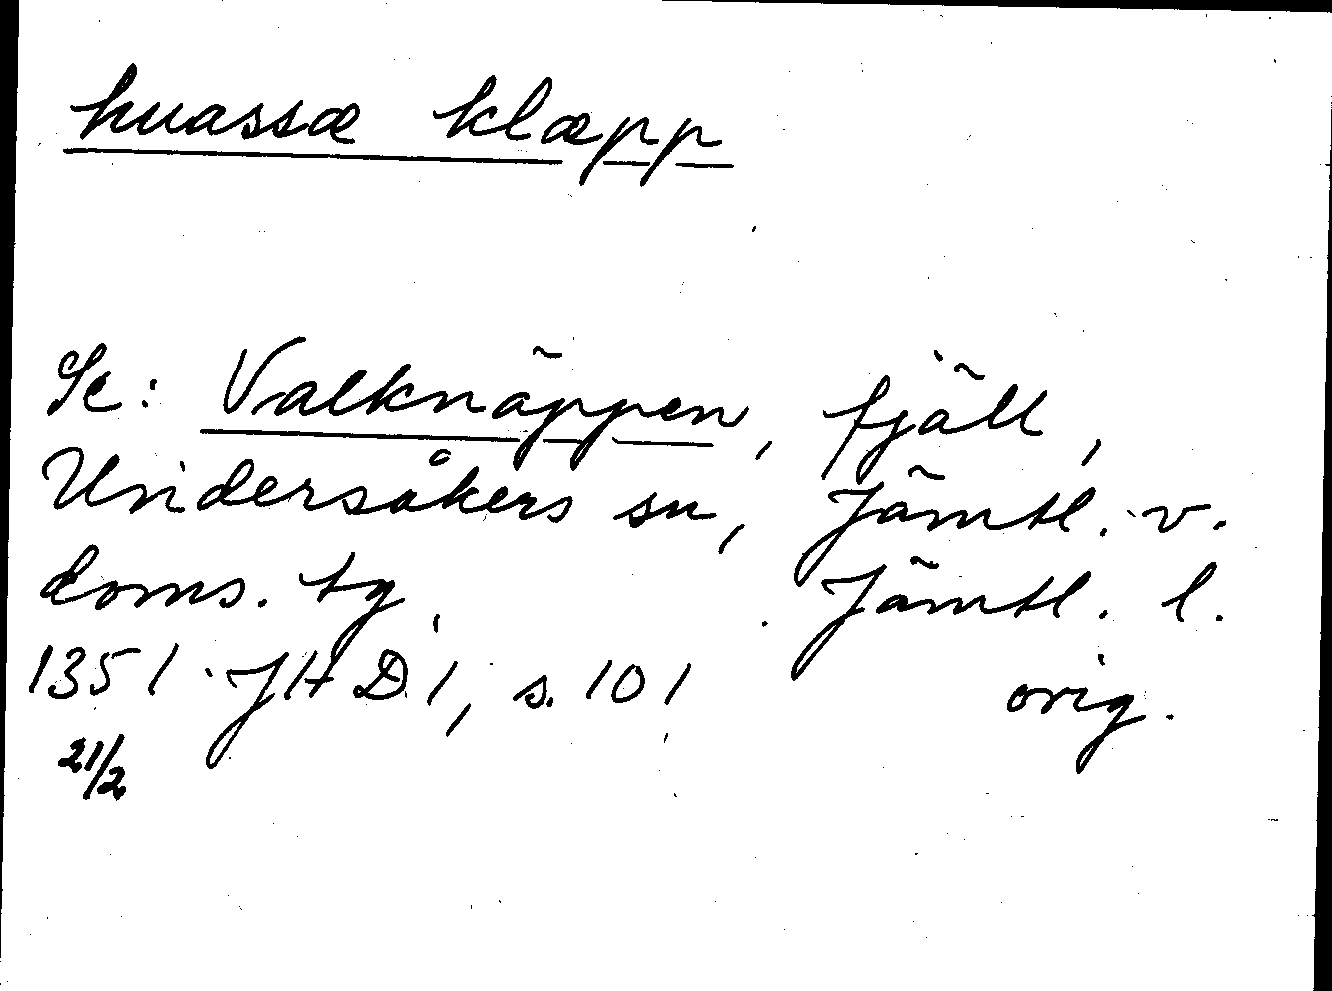 huassæ klæpp
Se: Valknäppen, fjäll,
Undersåkers sn, Jämtl. v.
doms. tg. Jämtl. l.
1351 JHD 1, s. 101 orig.
21/2